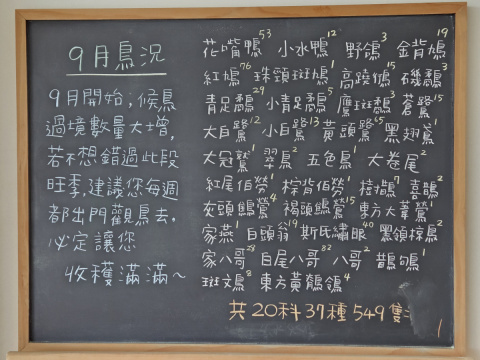 9月鳥況
9月開始,候鳥
過境數量大增,
若不想錯過此段
旺季,建議您每週
都出門觀鳥去,
必定讓您
收穫滿滿~
花嘴鴨53 小水鴨12 野鴿3 金背鳩19
紅鳩76 珠頸斑鳩1 高蹺鴴15 磯鷸3
青足鷸29 小青足鷸5 鷹斑鷸3 蒼鷺15
大白鷺12 小白鷺13 黃頭鷺65 黑翅鳶1
大冠鷲1 翠鳥2 五色鳥1 大卷尾2
紅尾伯勞1 棕背伯勞1 樹鵲7 喜鵲2
灰頭鷦鶯4 褐頭鷦鶯15 東方大葦鶯1
家燕1 白頭翁19 斯氏繡眼40 黑領椋鳥2
家八哥28 白尾八哥82 八哥2 鵲鴝1
斑文鳥8 東方黃鶺鴒4
共20科37種549隻